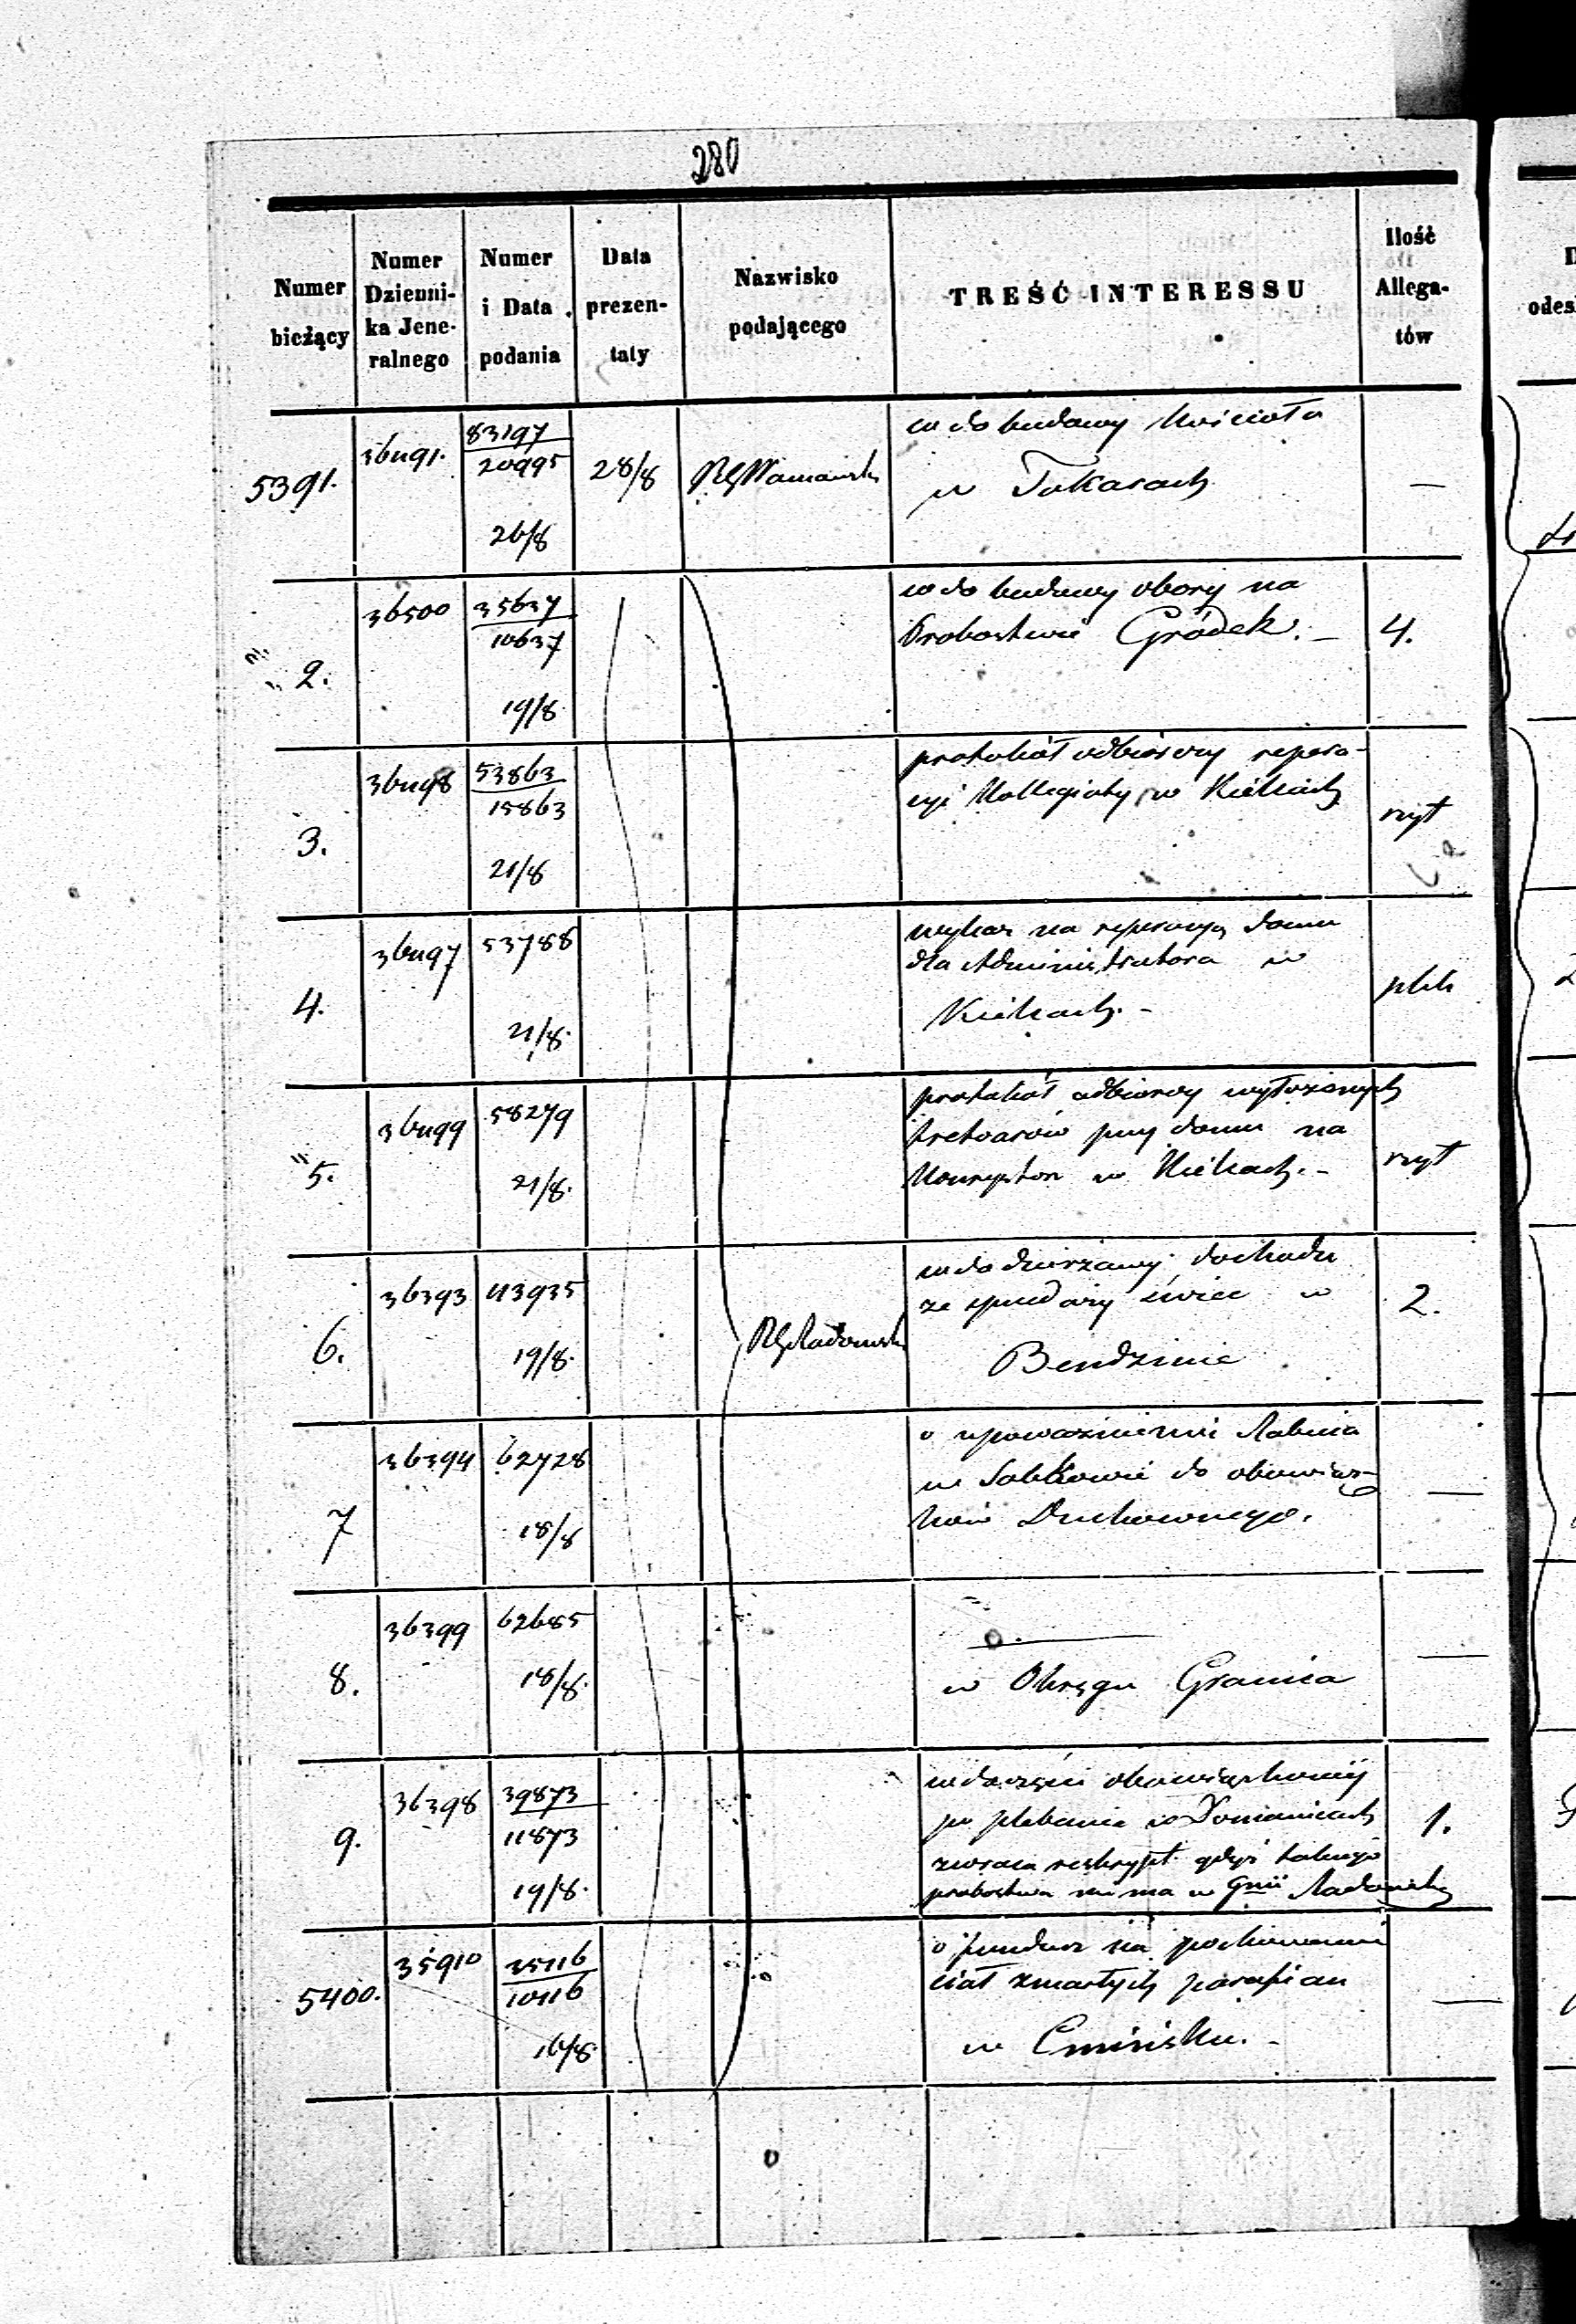 280
Numer bieżący
Numer Dzienni-ka Jene-ralnego
Numer i Data podania
Data prezen-taty
Nazwisko podającego
TREŚĆ INTERESSU
Ilość Allega-tów
5391.
36491.
83197
20995
26/8
28/8
w do budowy Kościoła
w Tokarach
—
2.
36500
35637
10637
19/8
w do budowy obory na
Probostwie Gródek. –
4.
3.
36498
53863
15863
21/8
protokół odbiorczy repera-
cyi Kollegiaty w Kielcach
4.
36497
53788
21/8.
wykaz na reperacyą domu
dla Administratora w
Kielcach. –
plik
5.
36499
58279
21/8.
protokół odbiorczy wyłożonych
tretoarów przy domu na
w Kielcach. –
6.
36393
43935
19/8.
RG Radomski
w do dzierżawy dochodu
ze sprzedaży świec w
Bendzinie
2.
7
36394
62728
18/8
o upoważnienie Rabina
w Sobkowie do obowiąz-
ków Duchownego.
—
8.
36399
62685
18/8.
w Okręgu
—
9.
36398
39873
11873
19/8.
po plebanie w
zwraca reskrypt gdyż takiego
probostwa nie ma w Gnii Radomskiej
1.
5400.
35910
35116
10116
16/8.
o fundusz na pochowanie
ciał zmarłych parafian
w Cmińsku. –
—